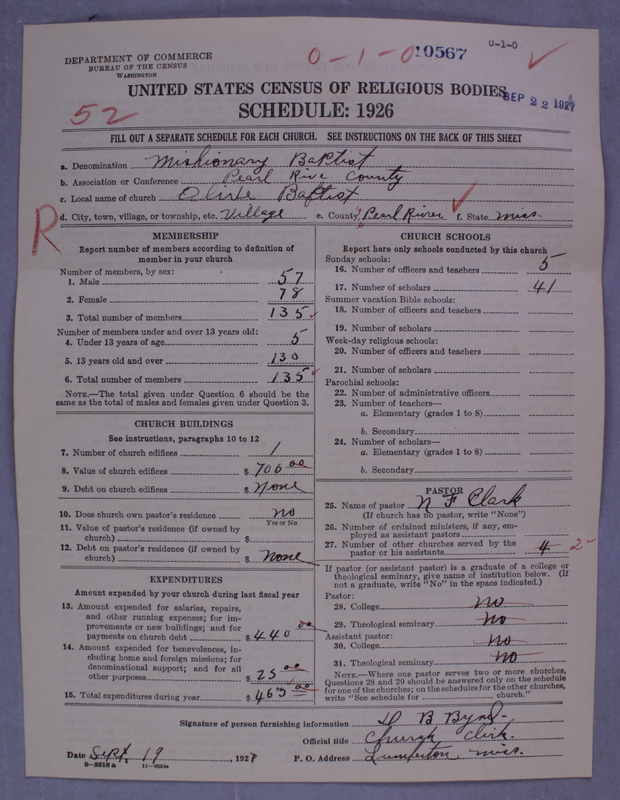 DEPARTMENT OF COMMERCE
BUREAU OF THE CENSUS
WASHINGTON
0-1-0
10567
0-1-0
UNITED STATES CENSUS OF RELIGIOUS BODIES
SEP 22 1927
52
SCHEDULE: 1926
FILL OUT A SEPARATE SCHEDULE FOR EACH CHURCH. SEE INSTRUCTIONS ON THE BACK OF THIS SHEET
a. Denomination Missionary Baptist
b. Association or Conference Pearl River County
c. Local name of church Olive Baptist
d. City, town, village, or township, etc. Village e. County Pearl River f. State Miss.
R
MEMBERSHIP
Report number of members according to definition of member in your church
Number of members, by sex:
1. Male 57
2. Female 78
3. Total number of members 135
Number of members under and over 13 years old:
4. Under 13 years of age 5
5. 13 years old and over 130
6. Total number of members 135
NOTE.—The total given under Question 6 should be the
same as the total of males and females given under Question 3.
CHURCH BUILDINGS
See instructions, paragraphs 10 to 12
7. Number of church edifices 1
8. Value of church edifices $ 700 00
9. Debt on church edifices $ None
10. Does church own pastor's residence no
Yes or No
11. Value of pastor's residence (if owned by
church) $
12. Debt on pastor's residence (if owned by
church) $ none
EXPENDITURES
Amount expended by your church during last fiscal year
13. Amount expended for salaries, repairs,
and other running expenses; for im-
provements or new buildings; and for
payments on church debt $ 440 00
14. Amount expended for benevolences, in-
cluding home and foreign missions; for
denominational support; and for all
other purposes $ 25 00
15. Total expenditures during year $ 465 00
CHURCH SCHOOLS
Report here only schools conducted by this church
Sunday schools:
16. Number of officers and teachers 5
17. Number of scholars 41
Summer vacation Bible schools:
18. Number of officers and teachers
19. Number of scholars
Week-day religious schools:
20. Number of officers and teachers
21. Number of scholars
Parochial schools:
22. Number of administrative officers
23. Number of teachers—
a. Elementary (grades 1 to 8)
b. Secondary
24. Number of scholars—
a. Elementary (grades 1 to 8)
b. Secondary
PASTOR
25. Name of pastor N F Clark
(If church has no pastor, write "None")
26. Number of ordained ministers, if any, em-
ployed as assistant pastors
27. Number of other churches served by the
pastor or his assistants 4 2
If pastor (or assistant pastor) is a graduate of a college or
theological seminary, give name of institution below. (If
not a graduate, write "No" in the space indicated.)
Pastor:
28. College no
29. Theological seminary no
Assistant pastor:
30. College no
31. Theological seminary no
NOTE.—Where one pastor serves two or more churches,
Questions 28 and 29 should be answered only on the schedule
for one of the churches; on the schedules for the other churches,
write "See schedule for church."
Signature of person furnishing information B Byrd
Official title Church Clerk.
Date Sept, 19, 1927 P. O. Address Lumberton, Miss.
8-5518a 11-9034a